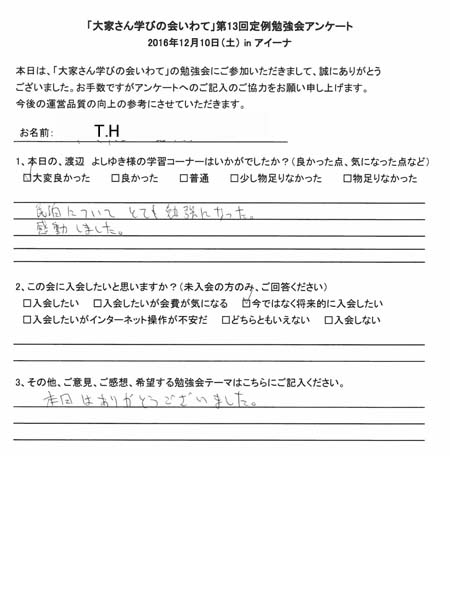 「大家さん学びの会いわて」第13回定例勉強会アンケート
2016年12月10日（土） in アイーナ
本日は、「大家さん学びの会いわて」の勉強会にご参加いただきまして、誠にありがとう
ございました。お手数ですがアンケートへのご記入のご協力をお願い申し上げます。
今後の運営品質の向上の参考にさせていただきます。
お名前： T.H
1、本日の、渡辺 よしゆき様の学習コーナーはいかがでしたか？（良かった点、気になった点など）
☑大変良かった □良かった □普通 □少し物足りなかった □物足りなかった
民泊について とても勉強になった。
感動しました。
2、この会に入会したいと思いますか？（未入会の方のみ、ご回答ください）
□入会したい □入会したいが会費が気になる ☑今ではなく将来的に入会したい
□入会したいがインターネット操作が不安だ □どちらともいえない □入会しない
3、その他、ご意見、ご感想、希望する勉強会テーマはこちらにご記入ください。
本日はありがとうございました。